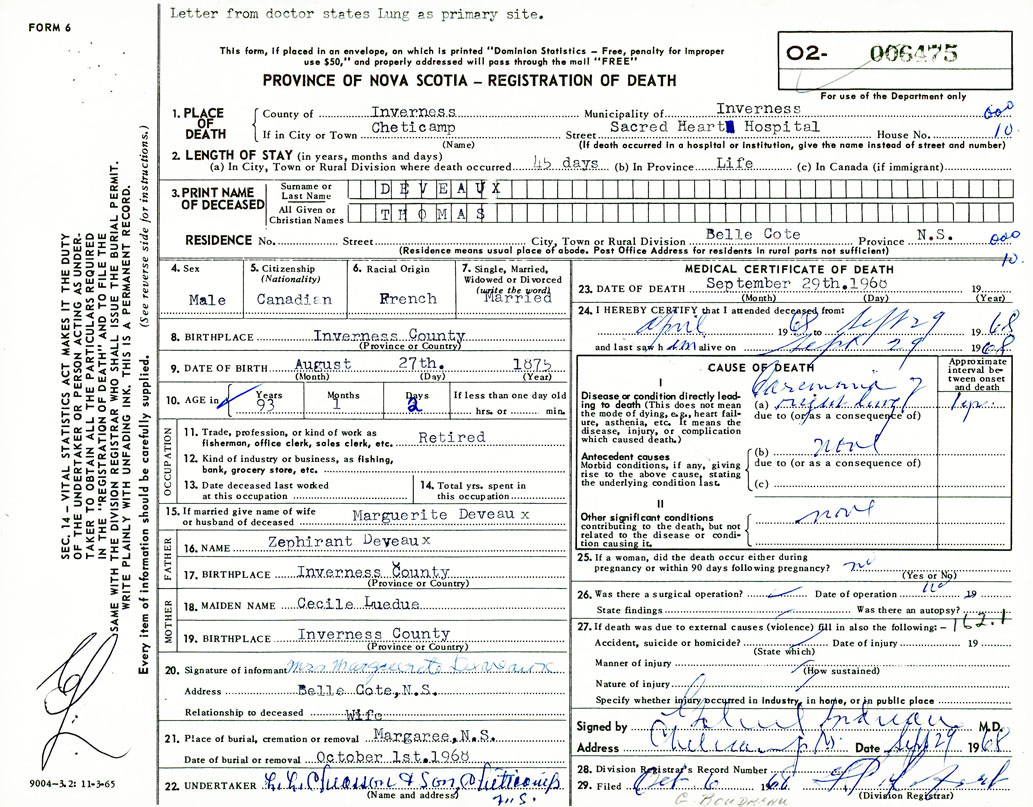 Letter from doctor states Lung as primary site.
FORM 6
This form, if placed in an envelope, on which is printed "Dominion Statistics – Free, penalty for improper
use $50," and properly addressed will pass through the mail "FREE"
PROVINCE OF NOVA SCOTIA – REGISTRATION OF DEATH
O2- 006475
For use of the Department only
SEC. 14 – VITAL STATISTICS ACT MAKES IT THE DUTY
OF THE UNDERTAKER OR PERSON ACTING AS UNDER-
TAKER TO OBTAIN ALL THE PARTICULARS REQUIRED
IN THE "REGISTRATION OF DEATH" AND TO FILE THE
SAME WITH THE DIVISION REGISTRAR WHO SHALL ISSUE THE BURIAL PERMIT.
WRITE PLAINLY WITH UNFADING INK. THIS IS A PERMANENT RECORD.
Every item of information should be carefully supplied. (See reverse side for instructions.)
9004–3.2: 11-3-65
1. PLACE OF DEATH
County of Inverness Municipality of Inverness 000
If in City or Town Cheticamp Street Sacred Heart Hospital House No. 10
(Name) (If death occurred in a hospital or institution, give the name instead of street and number)
2. LENGTH OF STAY (in years, months and days)
(a) In City, Town or Rural Division where death occurred 45 days (b) In Province Life (c) In Canada (if immigrant)
3. PRINT NAME OF DECEASED
Surname or Last Name DEVEAUX
All Given or Christian Names THOMAS
RESIDENCE No. Street City, Town or Rural Division Belle Cote Province N.S. 000
(Residence means usual place of abode. Post Office Address for residents in rural parts not sufficient) 10.
4. Sex Male
5. Citizenship (Nationality) Canadian
6. Racial Origin French
7. Single, Married, Widowed or Divorced (write the word) Married
8. BIRTHPLACE Inverness County
(Province or Country)
9. DATE OF BIRTH August 27th. 1875
(Month) (Day) (Year)
10. AGE in Years 93 Months 1 Days 2 If less than one day old
hrs. or min.
OCCUPATION
11. Trade, profession, or kind of work as fisherman, office clerk, sales clerk, etc. Retired
12. Kind of industry or business, as fishing, bank, grocery store, etc.
13. Date deceased last worked at this occupation
14. Total yrs. spent in this occupation
15. If married give name of wife or husband of deceased Marguerite Deveaux
FATHER
16. NAME Zephirant Deveaux
17. BIRTHPLACE Inverness County
(Province or Country)
MOTHER
18. MAIDEN NAME Cecile Luedue
19. BIRTHPLACE Inverness County
(Province or Country)
20. Signature of informant Mrs Marguerite Deveaux
Address Belle Cote, N.S.
Relationship to deceased Wife
21. Place of burial, cremation or removal Margaree, N.S.
Date of burial or removal October 1st.1968
22. UNDERTAKER & Son, Cheticamp
(Name and address) N.S.
MEDICAL CERTIFICATE OF DEATH
23. DATE OF DEATH September 29th.1968 19
(Month) (Day) (Year)
24. I HEREBY CERTIFY that I attended deceased from:
April 1968 to Sept 29 1968
and last saw him alive on Sept 29 1968
CAUSE OF DEATH
Approximate interval between onset and death
I
Disease or condition directly leading to death (This does not mean the mode of dying, e.g., heart failure, asthenia, etc. It means the disease, injury, or complication which caused death.)
(a) right lung
due to (or as a consequence of)
Antecedent causes
Morbid conditions, if any, giving rise to the above cause, stating the underlying condition last.
(b) none
due to (or as a consequence of)
(c)
II
Other significant conditions contributing to the death, but not related to the disease or condition causing it. none
25. If a woman, did the death occur either during pregnancy or within 90 days following pregnancy? no
(Yes or No)
26. Was there a surgical operation? Date of operation no 19
State findings Was there an autopsy?
27. If death was due to external causes (violence) fill in also the following: – 162.1
Accident, suicide or homicide? Date of injury 19
(State which)
Manner of injury
(How sustained)
Nature of injury
Specify whether injury occurred in Industry, in home, or in public place
Signed by M.D.
Address Date Sept 29 1968
28. Division Registrar's Record Number
29. Filed Oct 6 1968
(Division Registrar)